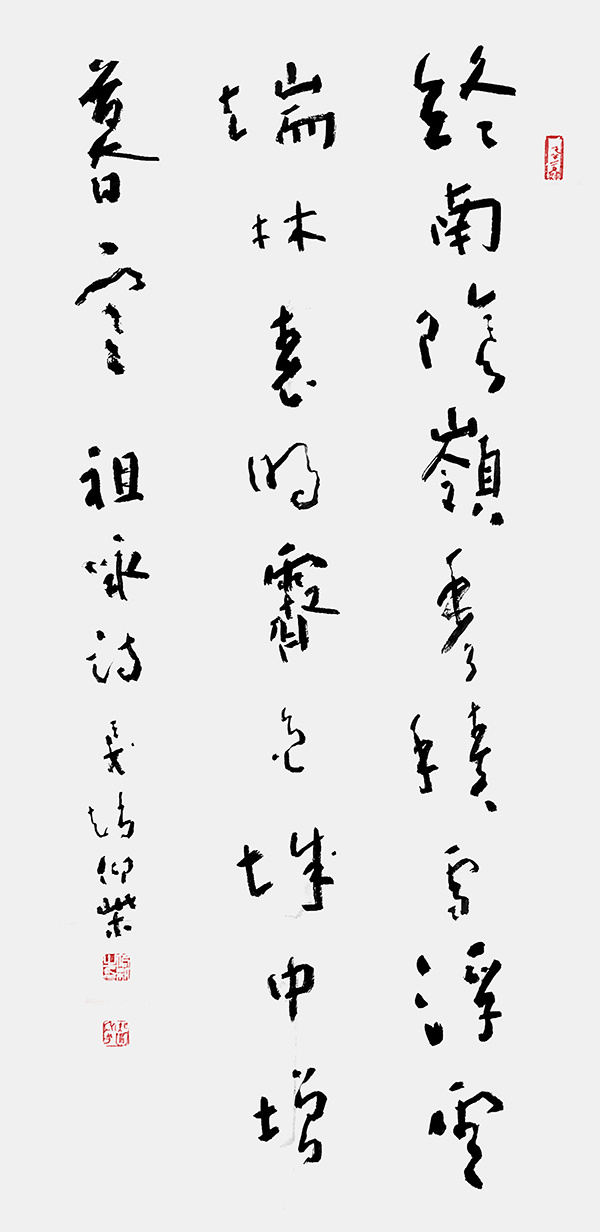 終南陰嶺秀積雪浮雲
端林表明霽色城中增
暮寒 祖詠詩